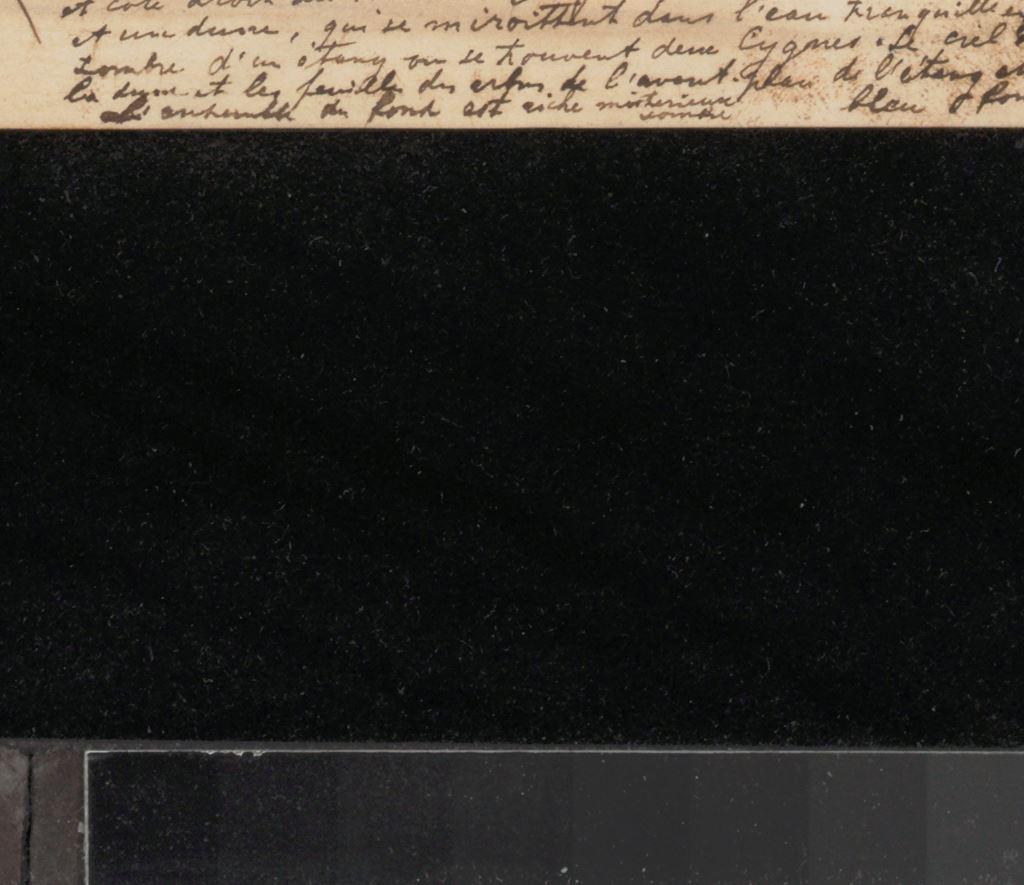 et coté droit
et une dune, qui se miroittent dans l'eau tranquille et
sombre d'un étang ou se trouvent deux Cygnes. Le ciel
la dune et les feuilles des arbres de l'avant-plan de l'étang et
L'ensemble du fond est riche misterieux bleu
sombre